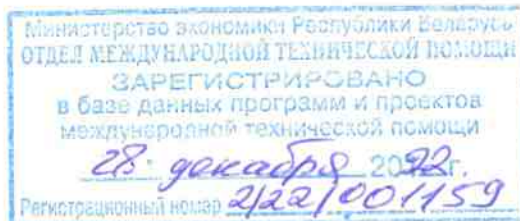 Министерство экономики Республики Беларусь
ОТДЕЛ МЕЖДУНАРОДНОЙ ТЕХНИЧЕСКОЙ ПОМОЩИ
ЗАРЕГИСТРИРОВАНО
в базе данных программ и проектов
международной технической помощи
28. декабря 2022г.
Регистрационный номер 2/22/001159